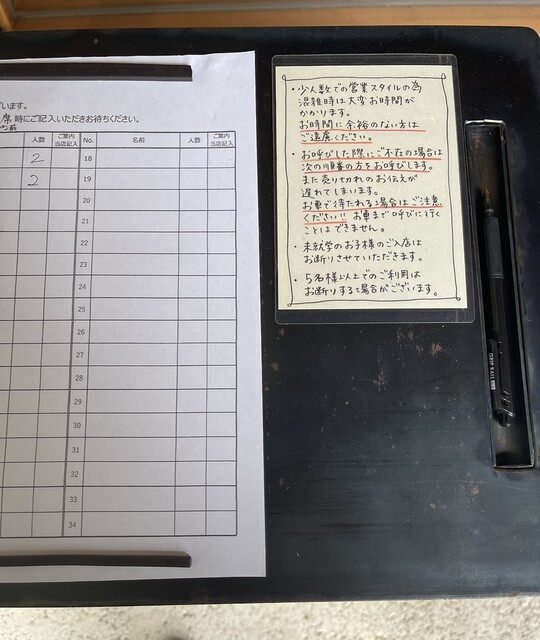 います。
席 時にご記入いただきお待ちください。
人数 ご案内 当店記入 No. 名前 人数 ご案内 当店記入
2 18
2 19
20
21
22
23
24
25
26
27
28
29
30
31
32
33
34
・少人数での営業スタイルの為
混雑時は大変お時間が
かかります。
お時間に余裕のない方は
ご遠慮ください。
・お呼びした際にご不在の場合は
次の順番の方をお呼びします。
また売り切れのお伝えが
遅れてしまいます。
お車で待たれる場合はご注意
ください!! お車まで呼びに行く
ことはできません。
・未就学のお子様のご入店は
お断りさせていただきます。
・5名様以上でのご利用は
お断りする場合がございます。
GRIP BALL